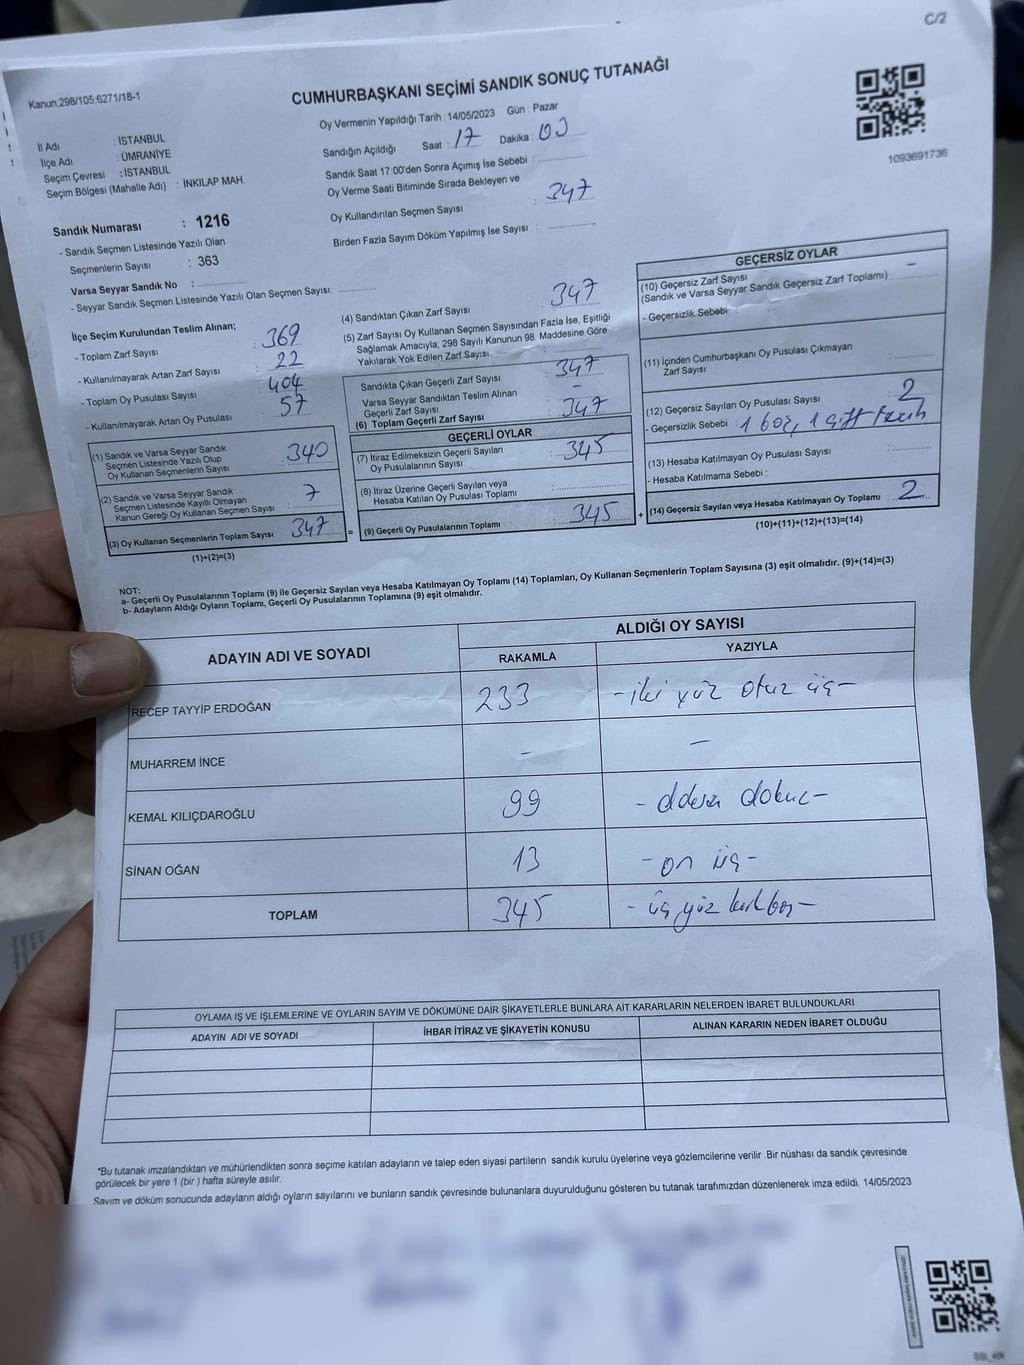 C/2
Kanun:298/105:6271/18-1
CUMHURBAŞKANI SEÇİMİ SANDIK SONUÇ TUTANAĞI
Oy Vermenin Yapıldığı Tarih : 14/05/2023 Gün : Pazar
1093691736
İl Adı : İSTANBUL
İlçe Adı : ÜMRANİYE
Seçim Çevresi : İSTANBUL
Seçim Bölgesi (Mahalle Adı) : İNKILAP MAH.
Sandığın Açıldığı Saat : 17 Dakika : 03
Sandık Saat 17:00'den Sonra Açımış İse Sebebi :
Oy Verme Saati Bitiminde Sırada Bekleyen ve
Oy Kullandırılan Seçmen Sayısı : 347
Birden Fazla Sayım Döküm Yapılmış İse Sayısı :
Sandık Numarası : 1216
- Sandık Seçmen Listesinde Yazılı Olan
Seçmenlerin Sayısı : 363
Varsa Seyyar Sandık No :
- Seyyar Sandık Seçmen Listesinde Yazılı Olan Seçmen Sayısı:
İlçe Seçim Kurulundan Teslim Alınan;
- Toplam Zarf Sayısı : 369
- Kullanılmayarak Artan Zarf Sayısı : 22
- Toplam Oy Pusulası Sayısı : 404
- Kullanılmayarak Artan Oy Pusulası : 57
(1) Sandık ve Varsa Seyyar Sandık
Seçmen Listesinde Yazılı Olup
Oy Kullanan Seçmenlerin Sayısı : 340
(2) Sandık ve Varsa Seyyar Sandık
Seçmen Listesinde Kayıtlı Olmayan
Kanun Gereği Oy Kullanan Seçmen Sayısı : 7
(3) Oy Kullanan Seçmenlerin Toplam Sayısı : 347
(1)+(2)=(3)
(4) Sandıktan Çıkan Zarf Sayısı : 347
(5) Zarf Sayısı Oy Kullanan Seçmen Sayısından Fazla İse, Eşitliği
Sağlamak Amacıyla, 298 Sayılı Kanunun 98. Maddesine Göre
Yakılarak Yok Edilen Zarf Sayısı :
Sandıkta Çıkan Geçerli Zarf Sayısı : 347
Varsa Seyyar Sandıktan Teslim Alınan
Geçerli Zarf Sayısı : -
(6) Toplam Geçerli Zarf Sayısı : 347
GEÇERLİ OYLAR
(7) İtiraz Edilmeksizin Geçerli Sayılan
Oy Pusulalarının Sayısı : 345
(8) İtiraz Üzerine Geçerli Sayılan veya
Hesaba Katılan Oy Pusulası Toplamı :
= (9) Geçerli Oy Pusulalarının Toplamı : 345 +
GEÇERSİZ OYLAR
(10) Geçersiz Zarf Sayısı -
(Sandık ve Varsa Seyyar Sandık Geçersiz Zarf Toplamı) :
- Geçersizlik Sebebi :
(11) İçinden Cumhurbaşkanı Oy Pusulası Çıkmayan
Zarf Sayısı :
(12) Geçersiz Sayılan Oy Pusulası Sayısı : 2
- Geçersizlik Sebebi : 1 boş, 1 çift tercih
(13) Hesaba Katılmayan Oy Pusulası Sayısı :
- Hesaba Katılmama Sebebi :
(14) Geçersiz Sayılan veya Hesaba Katılmayan Oy Toplamı : 2
(10)+(11)+(12)+(13)=(14)
NOT:
a- Geçerli Oy Pusulalarının Toplamı (9) ile Geçersiz Sayılan veya Hesaba Katılmayan Oy Toplamı (14) Toplamları, Oy Kullanan Seçmenlerin Toplam Sayısına (3) eşit olmalıdır. (9)+(14)=(3)
b- Adayların Aldığı Oyların Toplamı, Geçerli Oy Pusulalarının Toplamına (9) eşit olmalıdır.
ADAYIN ADI VE SOYADI
ALDIĞI OY SAYISI
RAKAMLA YAZIYLA
RECEP TAYYİP ERDOĞAN 233 -iki yüz otuz üç-
MUHARREM İNCE - -
KEMAL KILIÇDAROĞLU 99 -doksan dokuz-
SİNAN OĞAN 13 -on üç-
TOPLAM 345 -üç yüz kırk beş-
OYLAMA İŞ VE İŞLEMLERİNE VE OYLARIN SAYIM VE DÖKÜMÜNE DAİR ŞİKAYETLERLE BUNLARA AİT KARARLARIN NELERDEN İBARET BULUNDUKLARI
ADAYIN ADI VE SOYADI İHBAR İTİRAZ VE ŞİKAYETİN KONUSU ALINAN KARARIN NEDEN İBARET OLDUĞU
*Bu tutanak imzalandıktan ve mühürlendikten sonra seçime katılan adayların ve talep eden siyasi partilerin sandık kurulu üyelerine veya gözlemcilerine verilir .Bir nüshası da sandık çevresinde
görülecek bir yere 1 (bir ) hafta süreyle asılır.
Sayım ve döküm sonucunda adayların aldığı oyların sayılarını ve bunların sandık çevresinde bulunanlara duyurulduğunu gösteren bu tutanak tarafımızdan düzenlenerek imza edildi. 14/05/2023